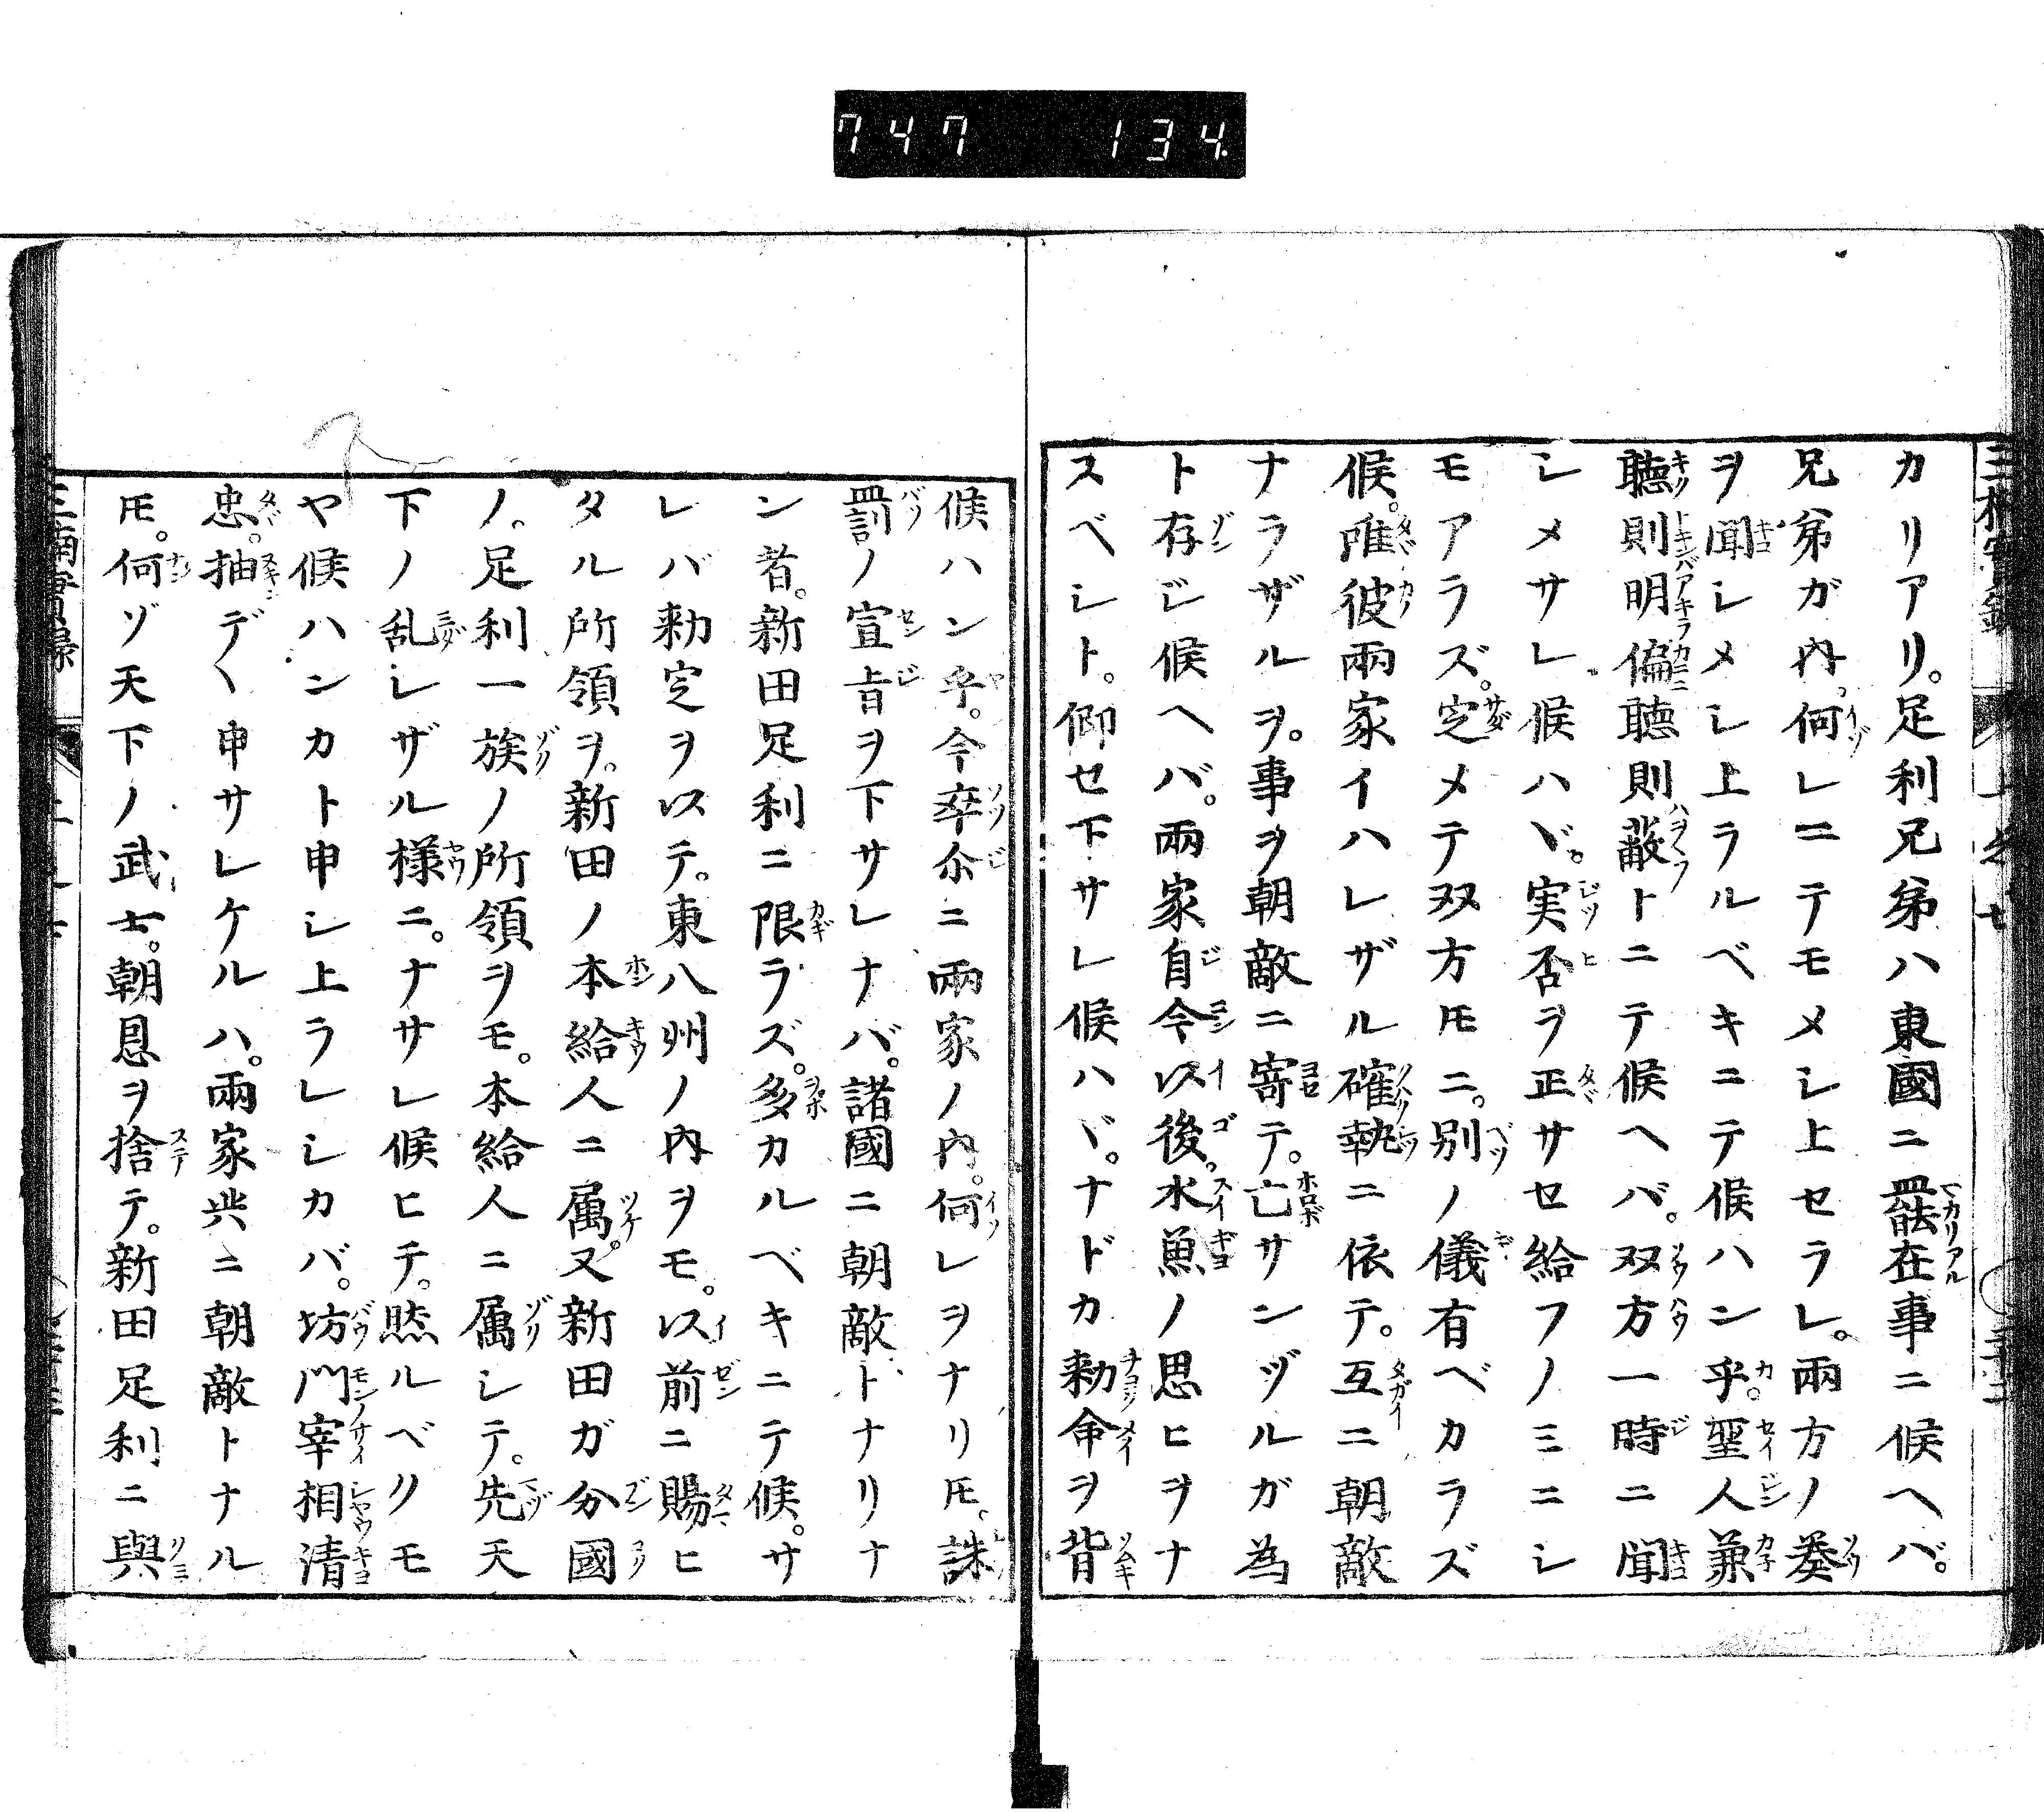 747 134
カリアリ。足利兄弟ハ東國ニ罷在事ニ候ヘバ。
兄弟ガ内。何レニテモメシ上セラレ。兩方ノ奏
ヲ聞シメシ上ラルベキニテ候ハン乎。聖人兼
聽則明偏聽則蔽トニテ候ヘバ。双方一時ニ聞
シメサレ候ハヾ。実否ヲ正サセ給フノミニシ
モアラズ。定メテ双方モニ。別ノ儀有ベカラズ
候。唯彼兩家イハレザル確執ニ依テ。互ニ朝敵
ナラザルヲ。事ヲ朝敵ニ寄テ。亡サンヅルガ為
ト存ジ候ヘバ。兩家自今以後。水魚ノ思ヒヲナ
スベシト。仰セ下サレ候ハヾ。ナドカ勅命ヲ背
候ハン乎。今卒尓ニ兩家ノ内。何レヲナリ𪜈。誅
罰ノ宣旨ヲ下サレナバ。諸國ニ朝敵トナリナ
ン者。新田足利ニ限ラズ。多カルベキニテ候。サ
レバ勅定ヲ以テ。東八州ノ内ヲモ。以前ニ賜ヒ
タル所領ヲ。新田ノ本給人ニ属。又新田ガ分國
ノ。足利一族ノ所領ヲモ。本給人ニ属シテ。先天
下ノ乱レザル様ニ。ナサレ候ヒテ。然ルベクモ
ヤ候ハンカト申シ上ラレシカバ。坊門宰相清
忠。抽デヽ申サレケルハ。兩家共ニ朝敵トナル
𪜈。何ゾ天下ノ武士。朝恩ヲ捨テ。新田足利ニ與